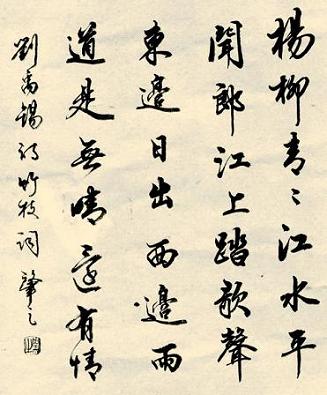 楊柳青〻江水平
聞郎江上踏歌聲
東邊日出西邊雨
道是無晴還有情
劉禹錫詩竹枝詞 肇之